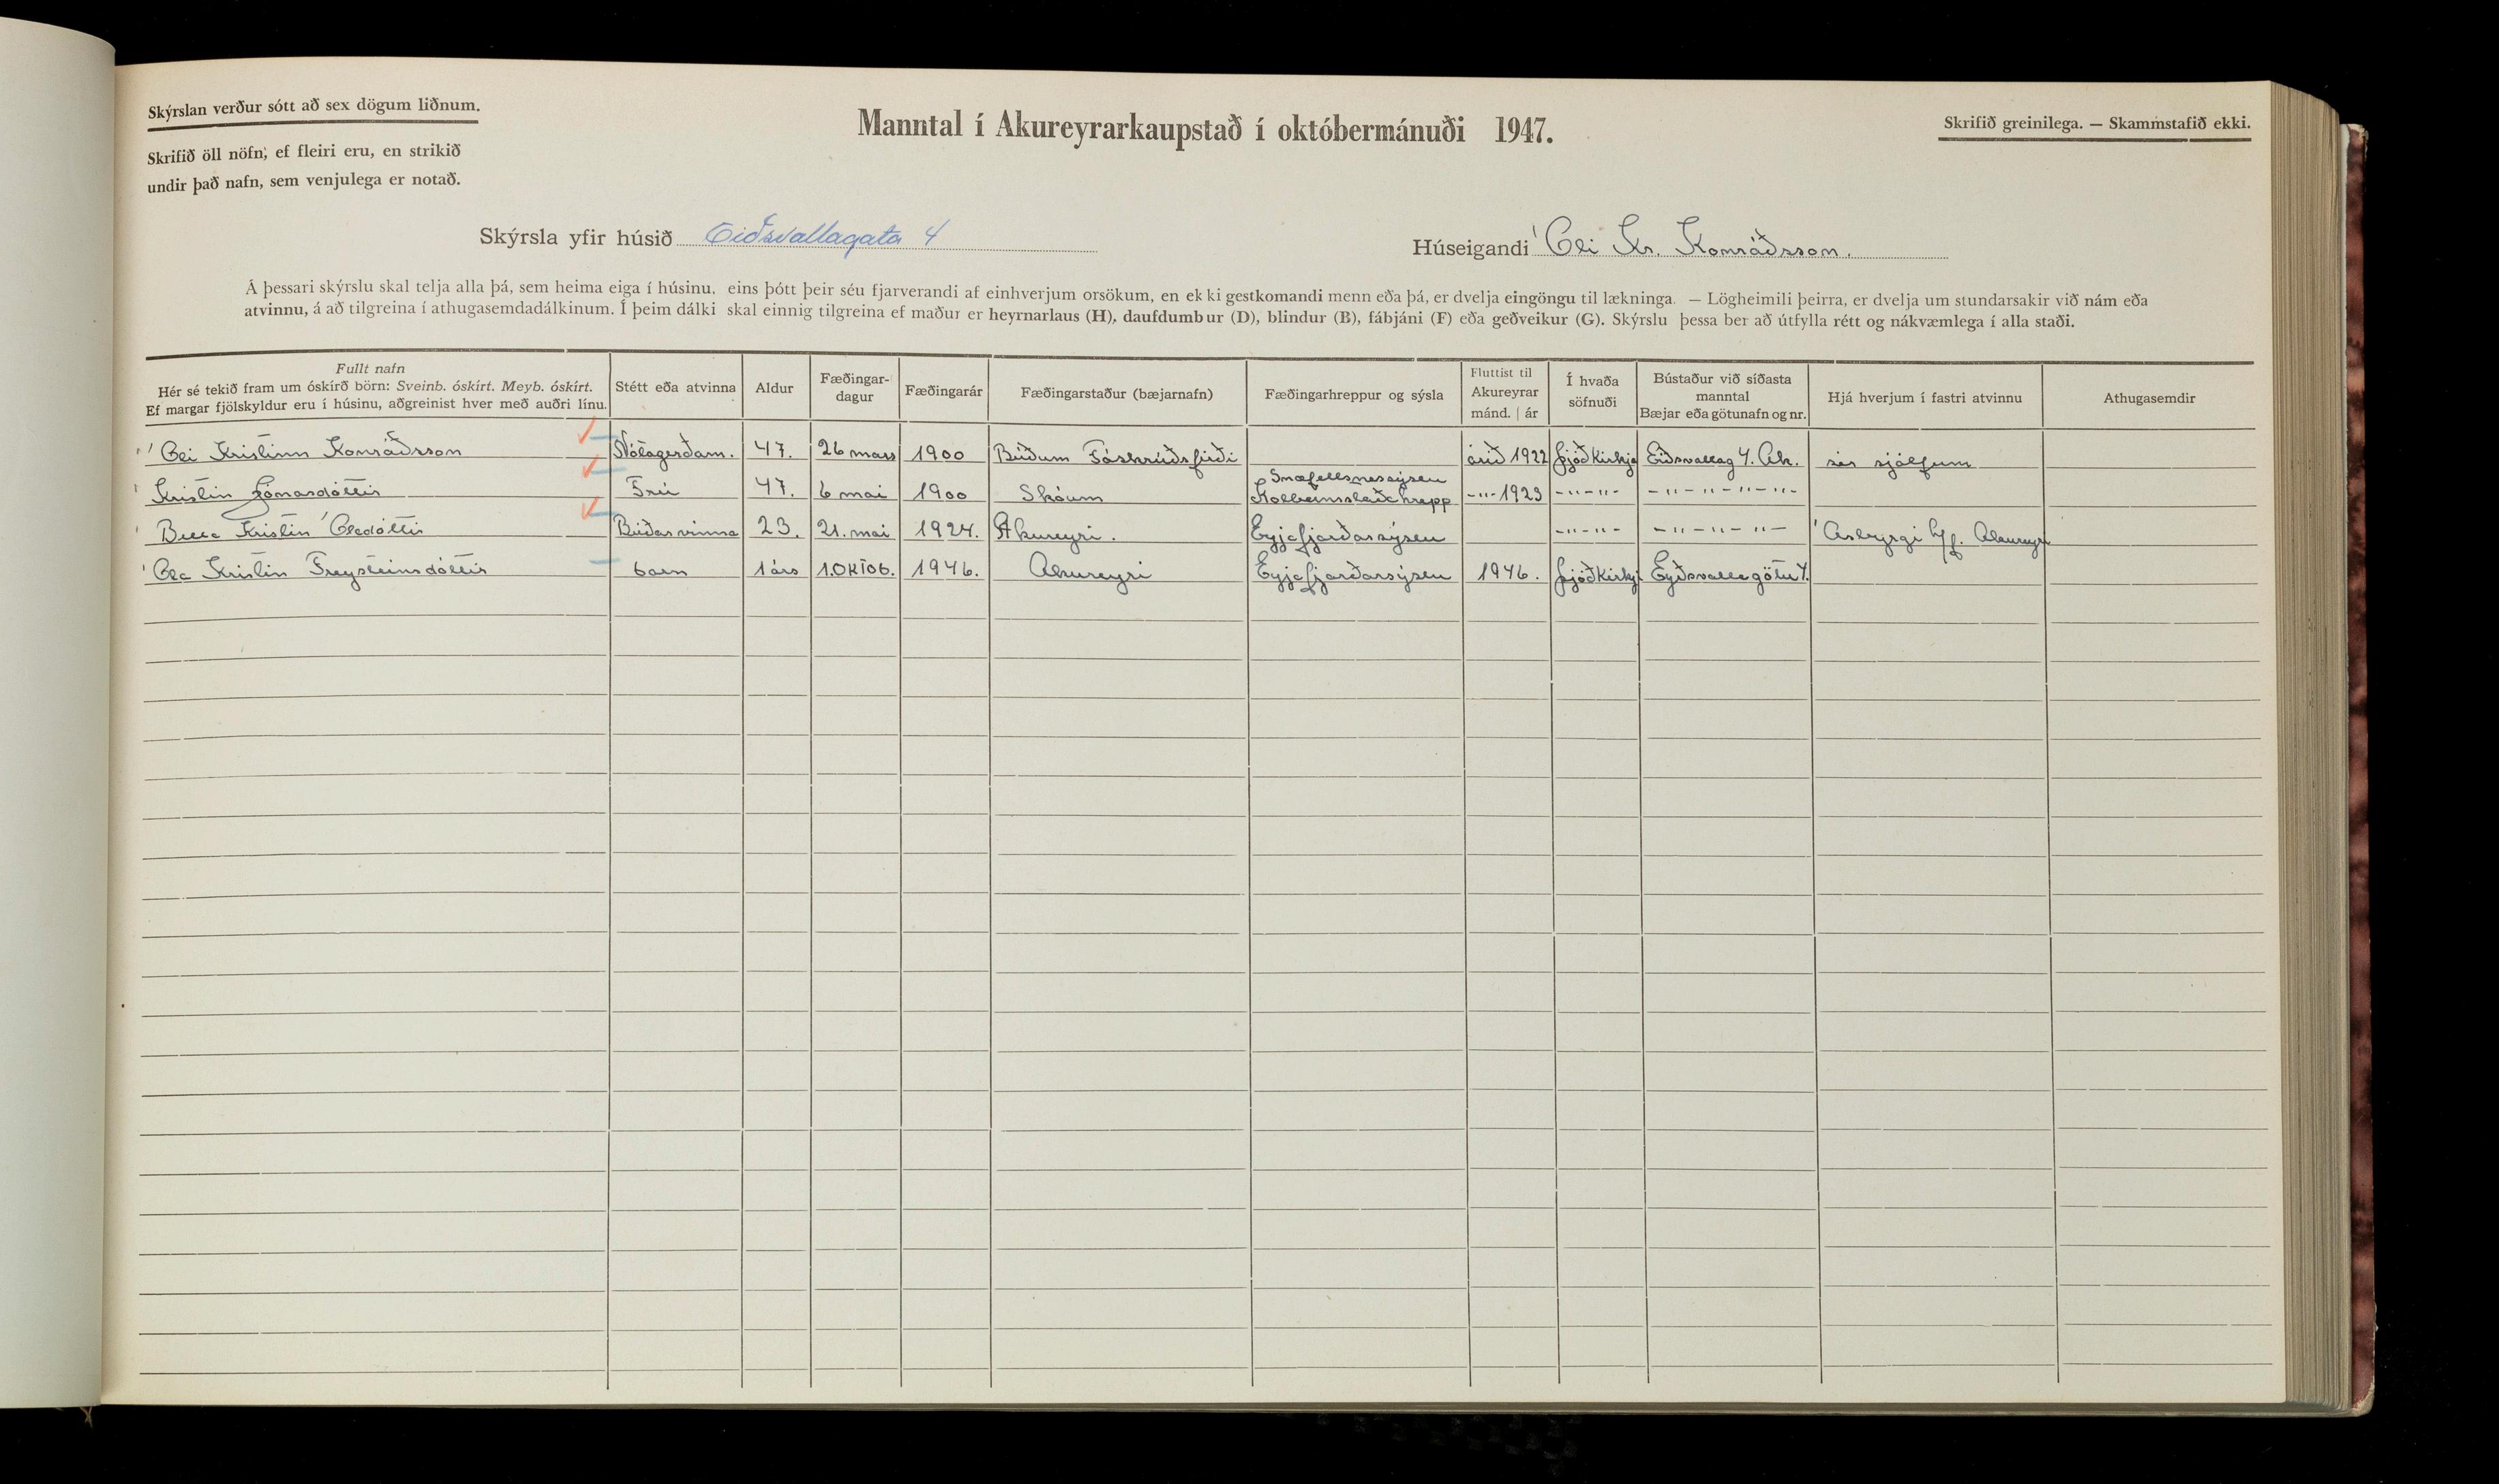 Skýrslan verður sótt að sex dögum liðnum.
Skrifið öll nöfn, ef fleiri eru, en strikið
undir það nafn, sem venjulega er notað.
Manntal í Akureyrarkaupstað í októbermánuði 1947.
Skrifið greinilega. — Skammstafið ekki.
Skýrsla yfir húsið Eiðsvallagata 4
Húseigandi Óli Kr. Konráðsson.
Á þessari skýrslu skal telja alla þá, sem heima eiga í húsinu, eins þótt þeir séu fjarverandi af einhverjum orsökum, en ekki gestkomandi menn eða þá, er dvelja eingöngu til lækninga. — Lögheimili þeirra, er dvelja um stundarsakir við nám eða
atvinnu, á að tilgreina í athugasemdadálkinum. Í þeim dálki skal einnig tilgreina ef maður er heyrnarlaus (H), daufdumbur (D), blindur (B), fábjáni (F) eða geðveikur (G). Skýrslu þessa ber að útfylla rétt og nákvæmlega í alla staði.
Fullt nafn
Hér sé tekið fram um óskírð börn: Sveinb. óskírt. Meyb. óskírt.
Ef margar fjölskyldur eru í húsinu, aðgreinist hver með auðri línu.
Stétt eða atvinna
Aldur
Fæðingar-
dagur
Fæðingarár
Fæðingarstaður (bæjarnafn)
Fæðingarhreppur og sýsla
Fluttist til
Akureyrar
mánd. | ár
Í hvaða
söfnuði
Bústaður við síðasta
manntal
Bæjar eða götunafn og nr.
Hjá hverjum í fastri atvinnu
Athugasemdir
Óli Kristinn Konráðsson Nótagerðam. 47. 26 mars 1900 Búðum Fáskrúðsfirði árið 1922 þjóðkirkja Eiðsvallag 4. Ak. sér sjálfum
Snæfellsnessýsla
Kristín Tómasdóttir Frú 47. 6 mai 1900 Skóum Kolbeinsstaðahrepp -"-1923 -"-"- -"-"-"-"-
Kristín Óladóttir Búðarvinna 23. 21. mai 1924. Akureyri. Eyjafjarðarsýsla -"-"- -"-"-"- Ásbyrgi h/f. Akureyri
Óla Kristín Freysteinsdóttir barn 1 árs 1.OKTOB. 1946. Akureyri Eyjafjarðarsýsla 1946. þjóðkirkj Eyðsvallagötu 4.